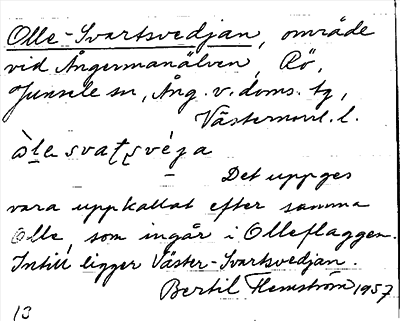 Olle-Svartsvedjan, område
vid Ångermanälven, Rö,
Junsele sn, Ång. v. doms. tg,
Västernorrl. l.
òle svaʈʂvéja
Det uppges
vara uppkallat efter samma
Olle, som ingår i Olleflaggen.
Intill ligger Väster-Svartsvedjan.
Bertil Flemström 1957
13